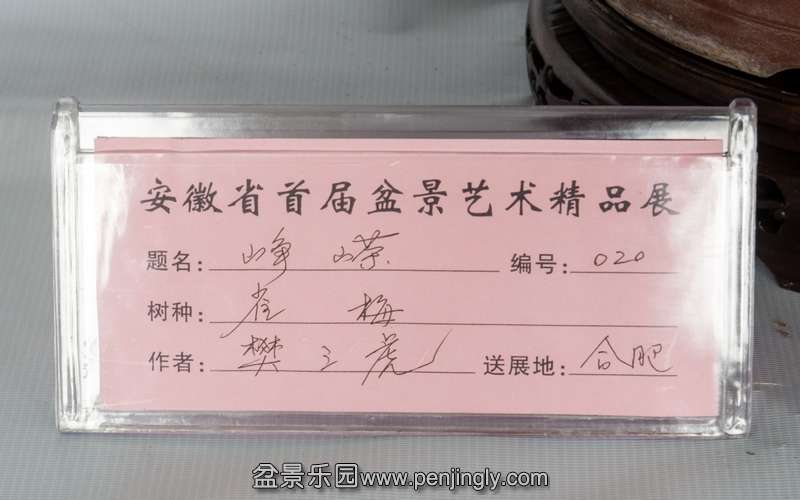 安徽省首届盆景艺术精品展
题名：峥嵘 编号：020
树种：雀梅
作者：樊三虎 送展地：合肥
盆景乐园www.penjingly.com